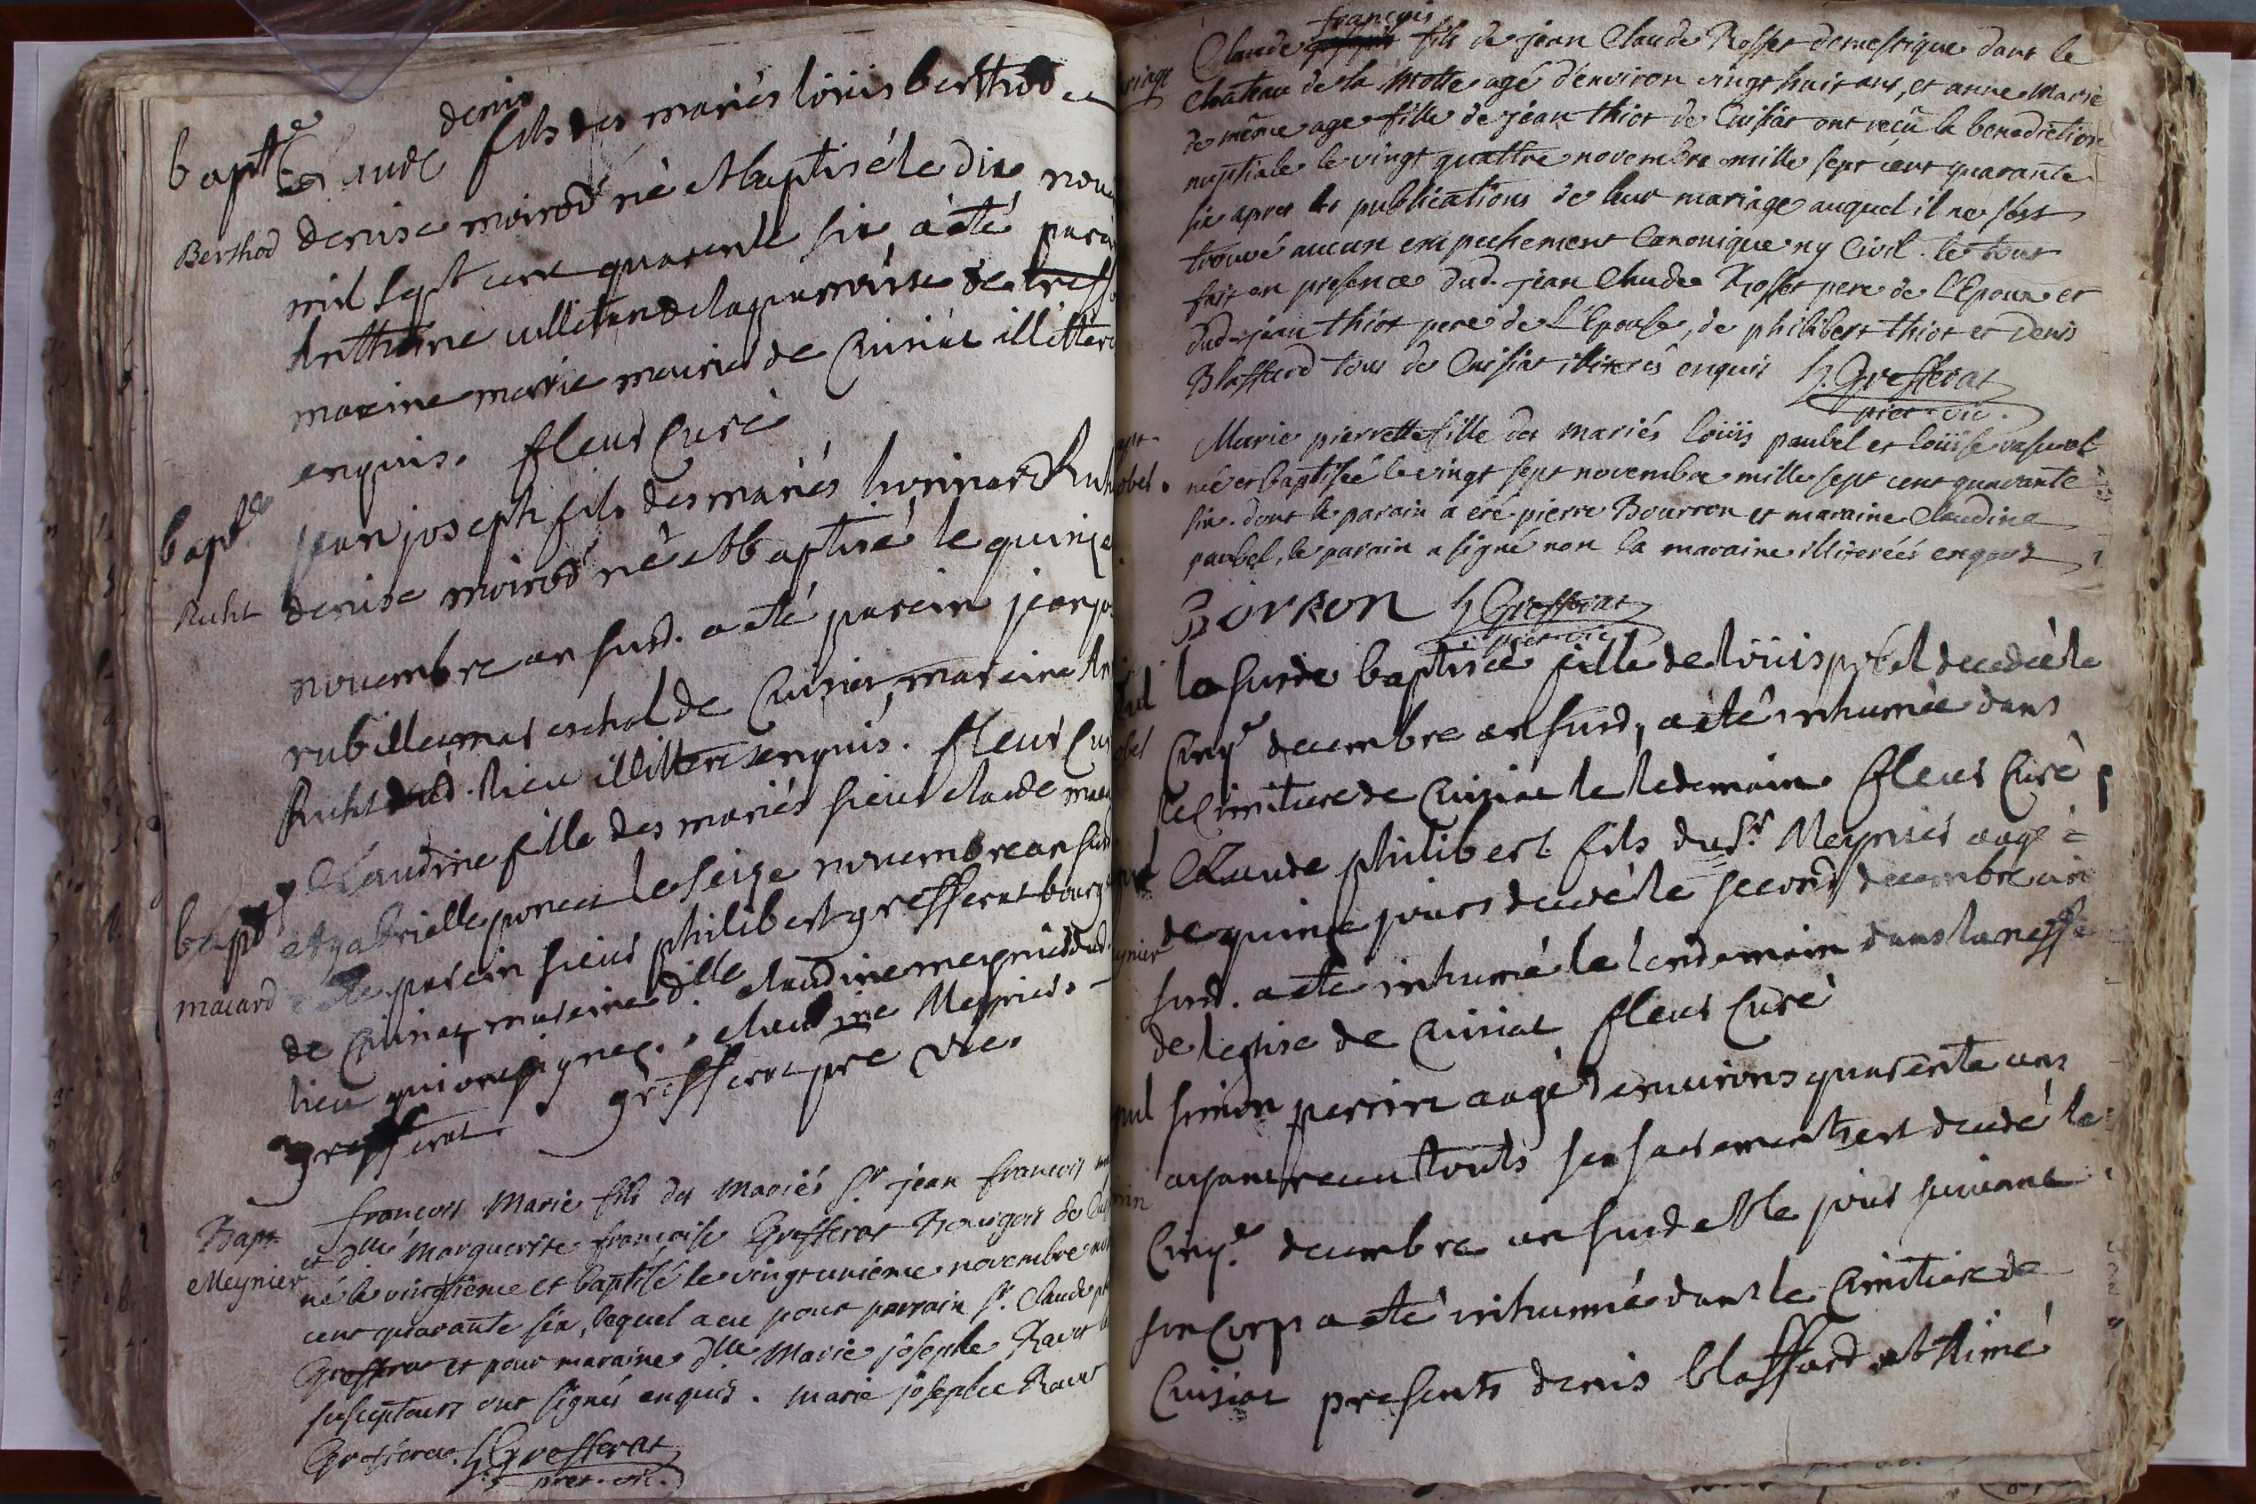 denis
bapt.e Claude fils des mariés loüis berthod et
Berthod denise moirod né et baptisé le dix nou
mil sept cent quarente six, a été parei
Anthoine de la parroisse de tress
mareine marie de Cuisiat illittere
enquis. fleur Curé
bapt.e jean joseph fils des mariés
Ruht denise moirod né et baptisé le quinze
nouembre an susd. a été parein jean jo
mareschal de Cuisiat, mareine An
Ruht dud. lieu illitteres enquis. fleur Cur
bapt. Claudine fille des mariés sieur claude mac
macard et gabrielle poncet le seize nouembre an susd
a été parein sieur philibert grefferat bourg
de Cuisiat mareine d.lle claudine meynier dud.
lieu qui ont signez. claudine Meynier.
grefferat. grefferat pre vic.
Bapt. françois Marie fils des Mariés S.r jean françois
Meynier et d.lle Marguerite françoise Grefferat Bourgeois de Cuis
né le vingtieme et baptisé le vingt unieme novembre
cent quarante six, lequel a eu pour parrain S.r Claude ph
Grefferat et pour maraine d.lle Marie josephe Ravet
suscepteurs ont signés enquis. marie josephe Ravet
Grefferat. Grefferat
pret. vic.
françois
riage Claude fils de jean Claude Rosset domestique dans le
Château de la Motte agé d'environ vingt huit ans, et anne Marie
de même age fille de jean thiot de Cuisiat ont reçû la benediction
nuptiale le vingt quattre novembre mille sept cent quarante
six apres les publications de leur mariage auquel il ne s'est
trouvé aucun empechement Canonique ny Civil. le tout
fait en presence dud. jean Claude Rosset pere de l'Epoux et
dud. jean thiot pere de L'Epouse, de philibert thiot et Denis
Blaffard tous de Cuisiat illiterés enquis Grefferat
pret. vic.
Marie pierrette fille des mariés Loüis paubel et Loüise
née et baptisée le vingt sept novembre mille sept cent quarante
obel. six. dont le parain a été pierre Bourron et maraine Claudine
paubel, le parain a signé non la maraine illiterées enquis
BorRon Grefferat
pret. vic
la susde baptisée fille de loüis decedée le
Cinq.e decembre an susd, a été inhumée dans
le Cimitiere de Cuisiat le lendemain fleur Curé
Claude philibert fils du S.r Meynier augé
de quinze jours decedé le second decembre an
ynier susd. a été inhumé le lendemain dans la neffe
de leglise de Cuisiat fleur Curé
simon perrin augé denuirons quarente ans
ayant receu touts ses sacrements est decedé le
rrin Cinq.e decembre an susd et le jour suiuant
son Corp a été inhumé dans le Cimitiere de
Cuisiat presents denis blaffard et